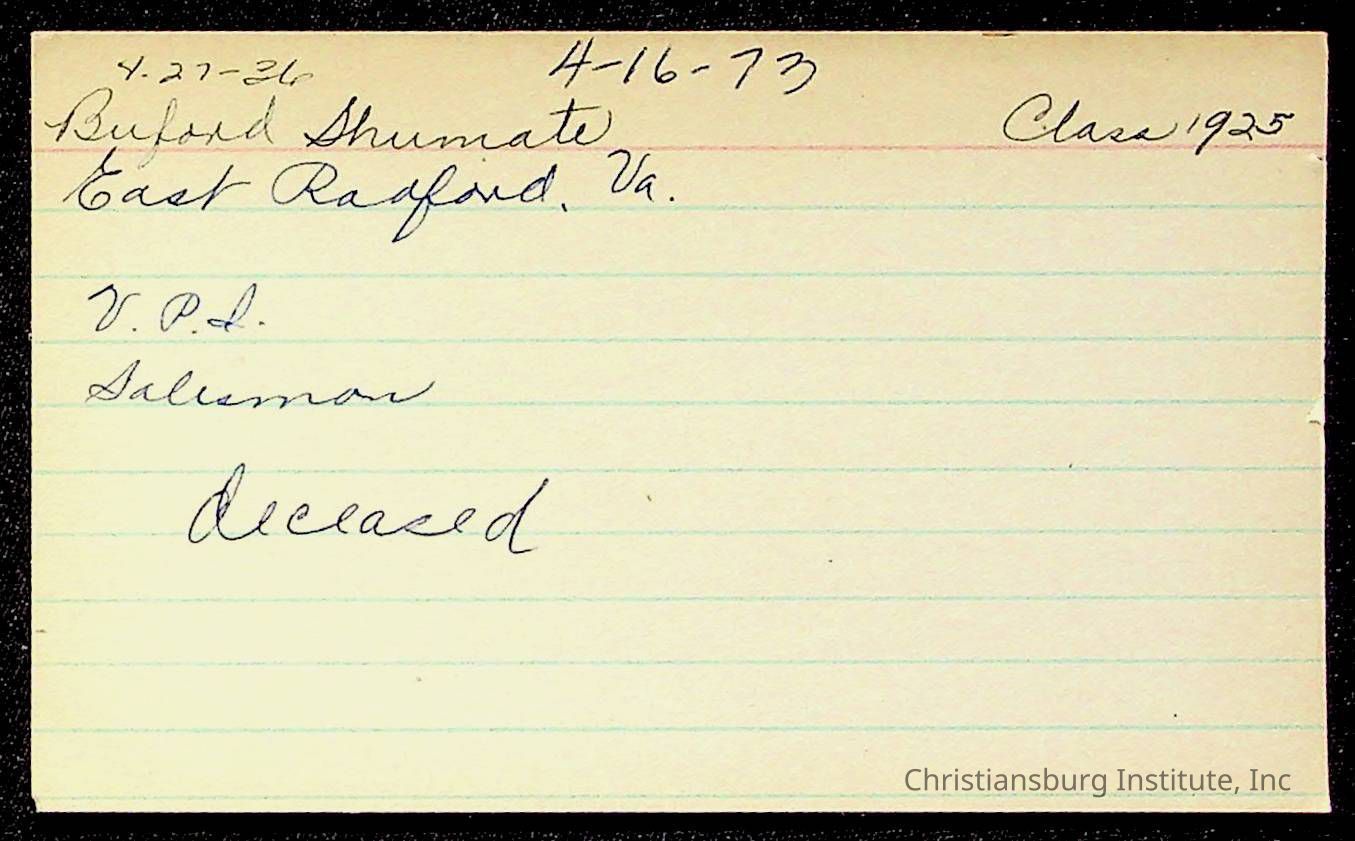 4-27-36 4-16-73
Buford Shumate Class 1925
East Radford, Va.
V. P. I.
Salesman
deceased
Christiansburg Institute, Inc